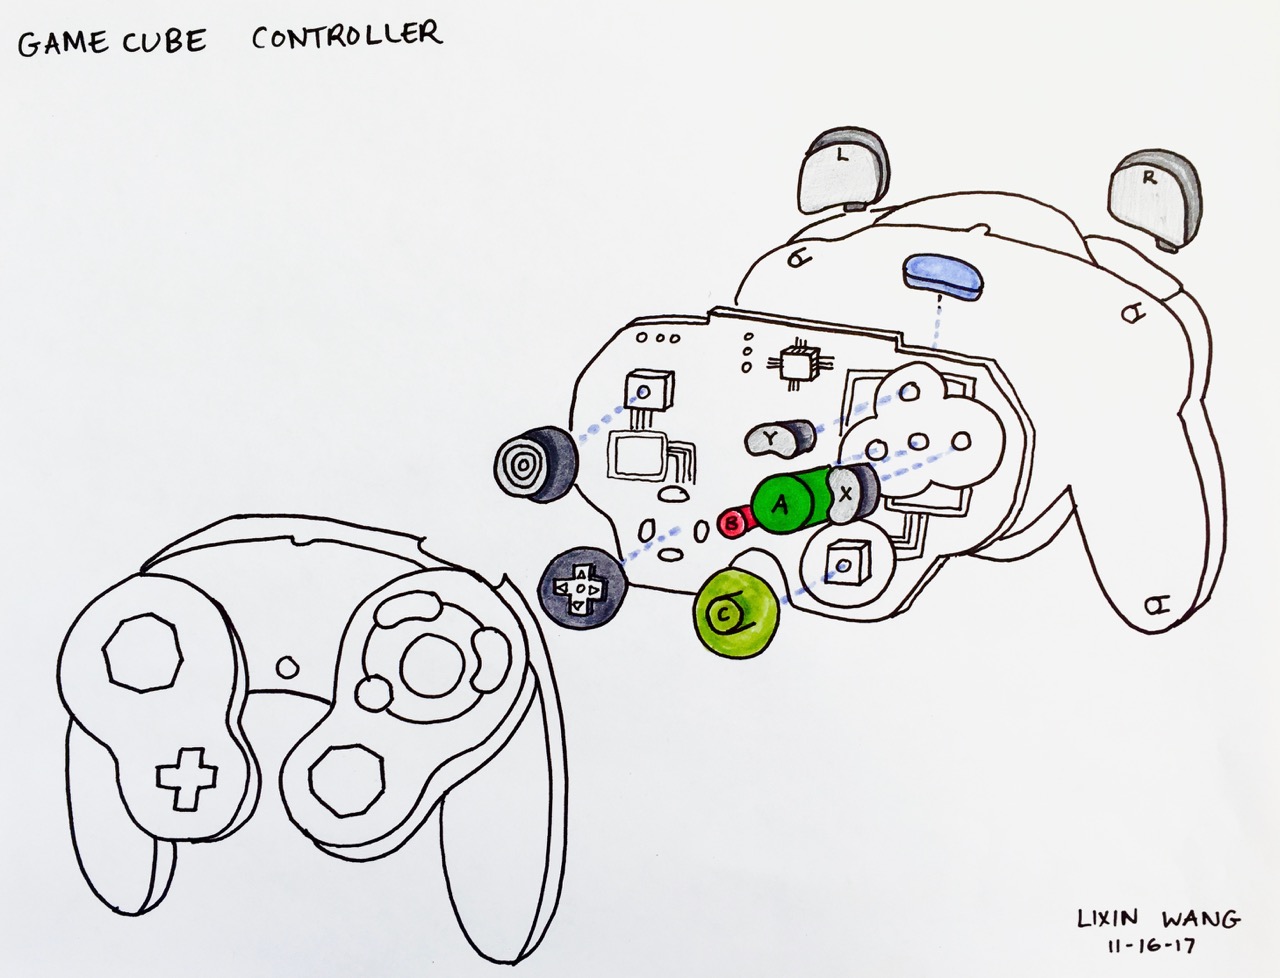 GAME CUBE CONTROLLER
L
R
Y
X
A
B
C
LIXIN WANG
11-16-17